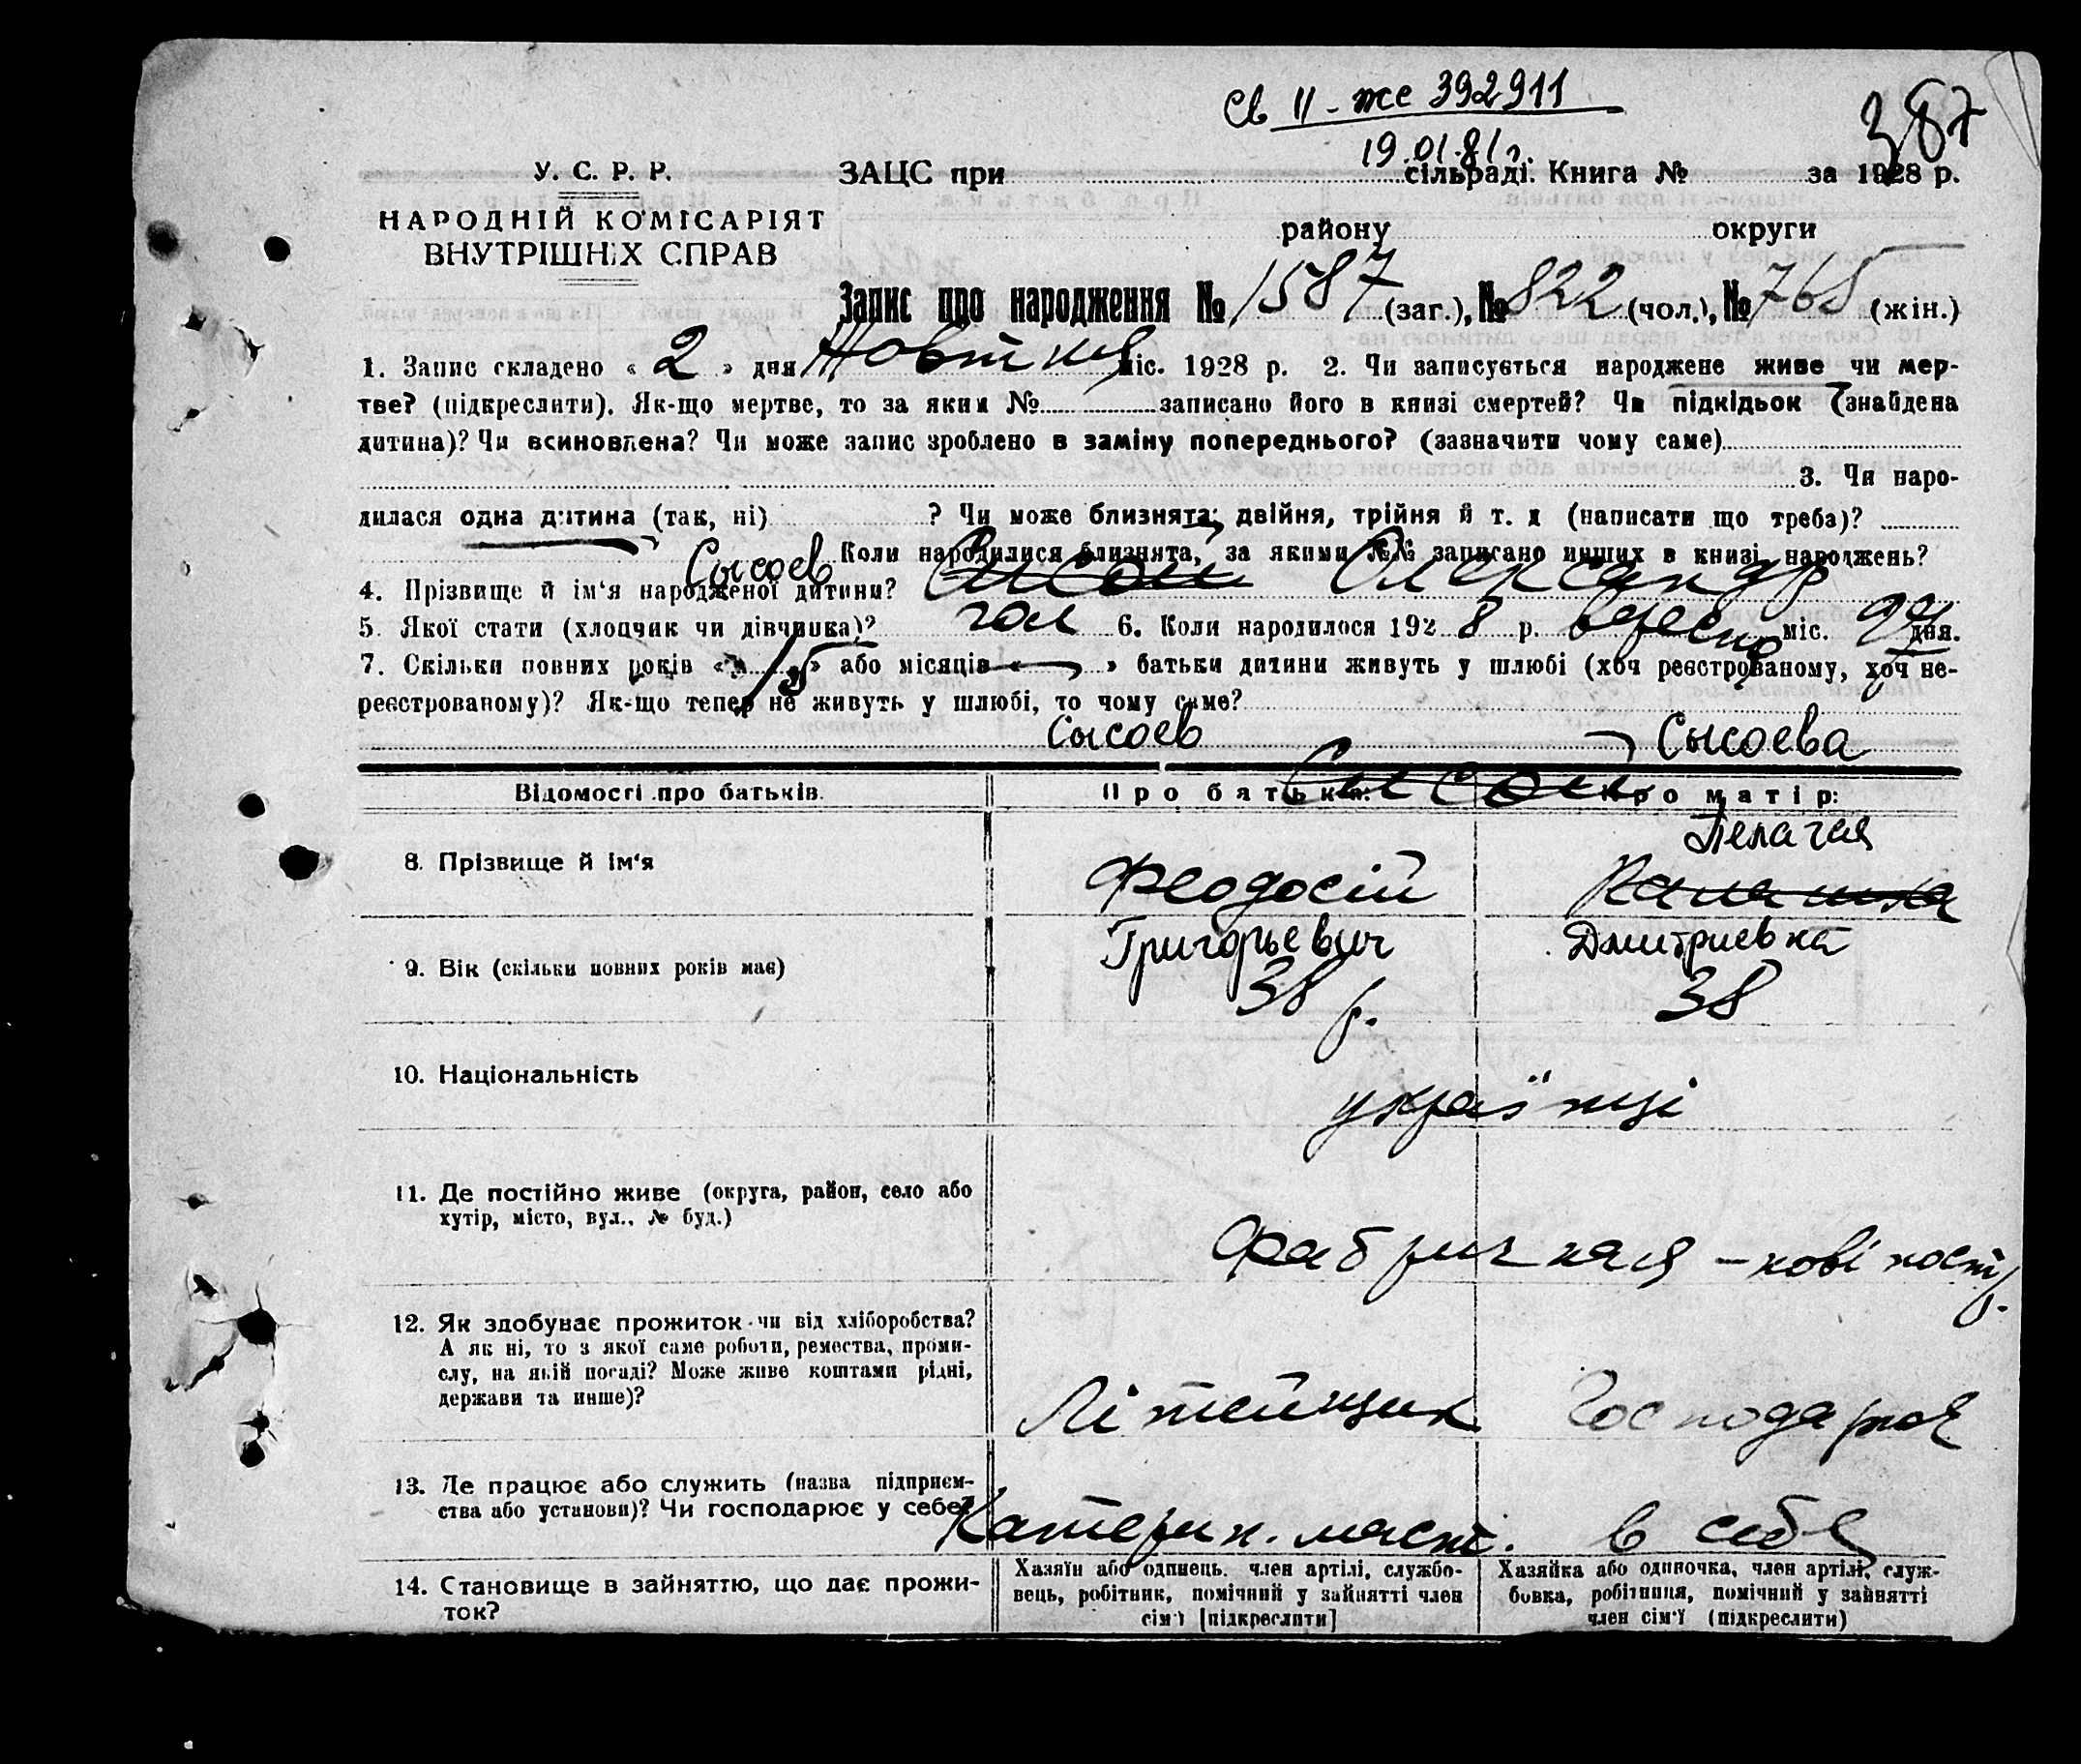 Св II - же 392911
19.01.81 г.
387
У. С. Р. Р.
НАРОДНІЙ КОМІСАРІЯТ
ВНУТРІШНІХ СПРАВ
ЗАЦС при сільраді. Книга № за 1928 р.
району округи
Запис про народження № 1587 (заг.), № 822 (чол.), № 765 (жін.)
1. Запис складено « 2 » дня Жовтня міс. 1928 р. 2. Чи записується народжене живе чи мер-
тве? (підкреслити). Як-що мертве, то за яким № записано його в книзі смертей? Чи підкідьок (знайдена
дитина)? Чи всиновлена? Чи може запис зроблено в заміну попереднього? (зазначити чому саме)
3. Чи наро-
дилася одна дитина (так, ні) ? Чи може близнята: двійня, трійня й т. д (написати що треба)?
Коли народилися близнята, за якими №№ записано инших в книзі народжень?
Сысоев
4. Прізвище й ім‘я народженої дитини? Сисой Олександр
5. Якої стати (хлопчик чи дівчинка)? чол 6. Коли народилося 192 8 р. вересня міс. 29 дня.
7. Скільки повних років « 15 » або місяців « — » батьки дитини живуть у шлюбі (хоч реєстрованому, хоч не-
реєстрованому)? Як-що тепер не живуть у шлюбі, то чому саме?
Сысоев Сысоева
Відомості про батьків. Про батька: Про матір:
Сисой
Пелагея
8. Прізвище й ім‘я Феодосій
Григорьевич Дмитриевна
9. Вік (скільки повних років має) 38 р. 38
10. Національність українці
11. Де постійно живе (округа, район, село або
хутір, місто, вул., № буд.)
Фабричная
12. Як здобуває прожиток чи від хліборобства?
А як ні, то з якої саме роботи, ремества, проми-
слу, на якій посаді? Може живе коштами рідні,
держави та инше)?
Літейщик Господарка
13. Де працює або служить (назва підприєм-
ства або установи)? Чи господарює у себе?
Катерин. маєт. в себе
14. Становище в зайняттю, що дає прожи-
ток?
Хазяїн або одинець, член артілі, службо-
вець, робітник, помічний у зайнятті член
сім‘ї [підкреслити]
Хазяйка або одиночка, член артілі, служ-
бовка, робітниця, помічний у зайнятті
член сім‘ї (підкреслити)